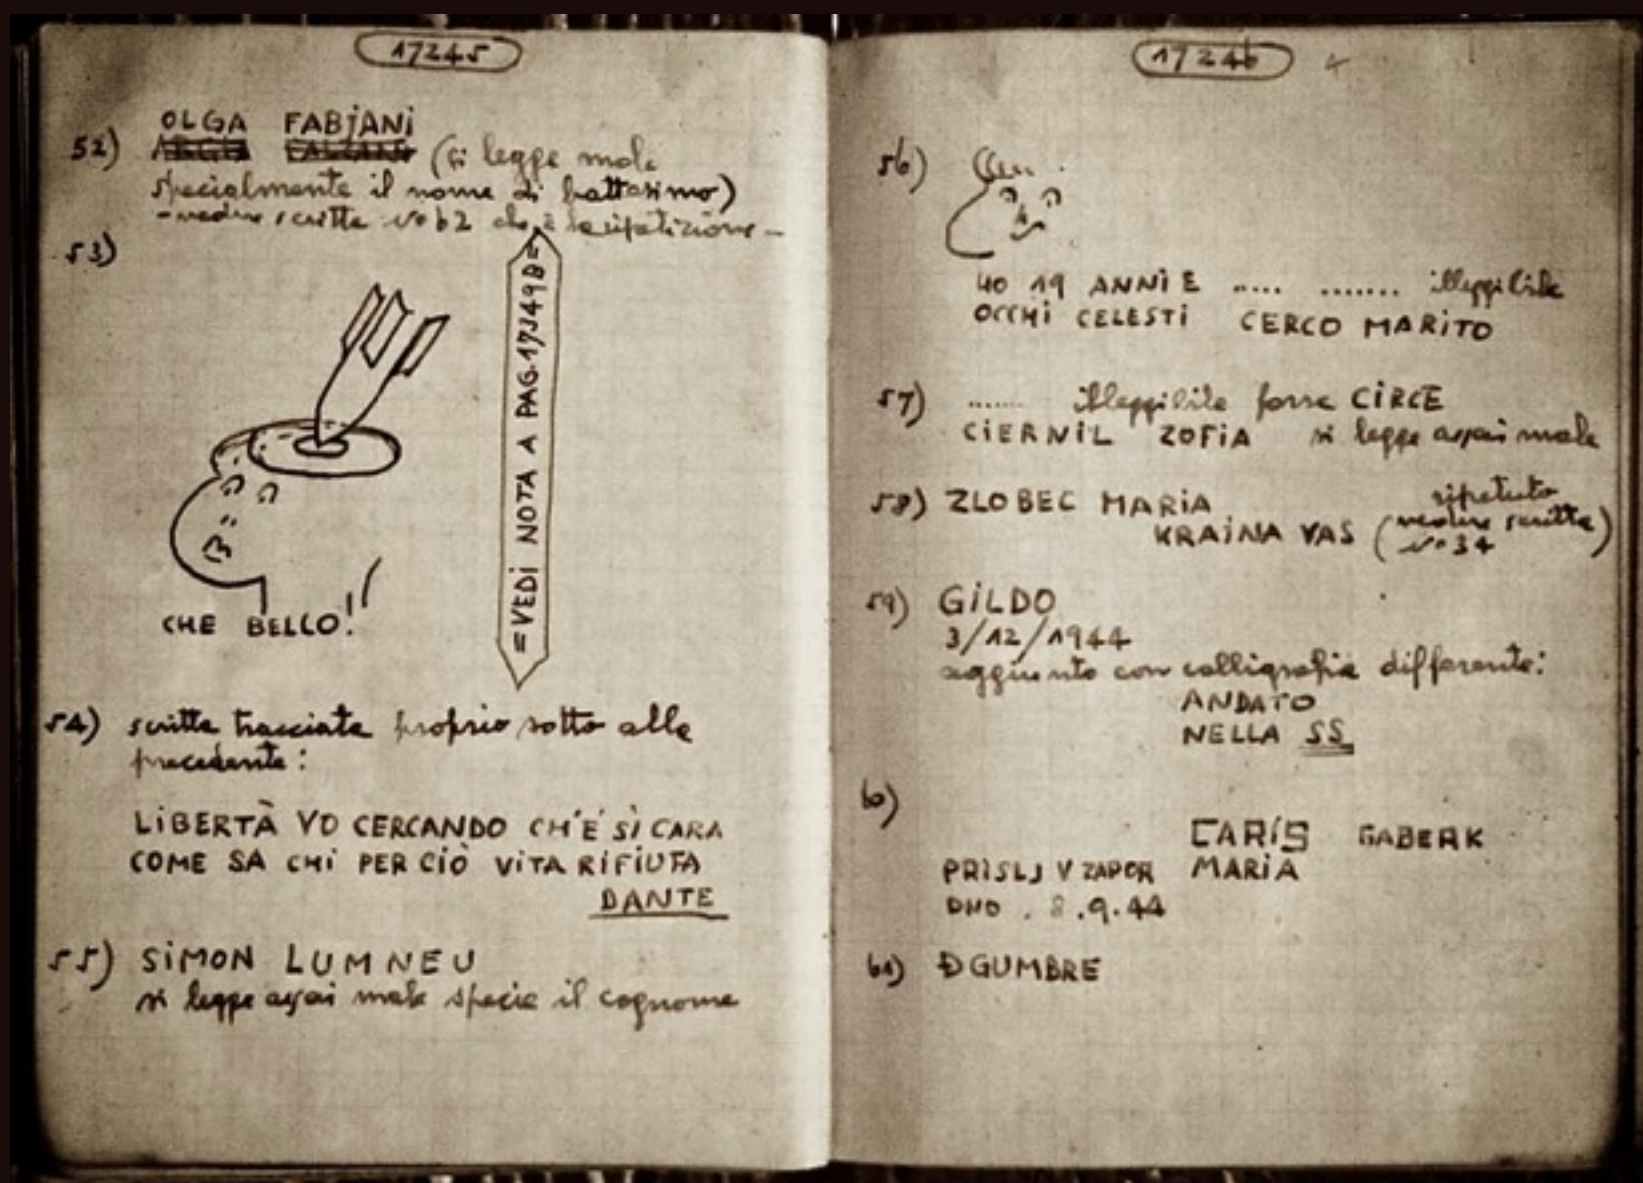 17245
OLGA FABIANI
52) (si legge male
specialmente il nome di battesimo)
-vedere scritta N° 62 che è la ripetizione-
53)
=VEDI NOTA A PAG. 17349B=
CHE BELLO!
54) scritta tracciata proprio sotto alla
precedente:
LIBERTÀ VO CERCANDO CH'È SÌ CARA
COME SA CHI PER CIÒ VITA RIFIUTA
DANTE
55) SIMON LUMNEU
si legge assai male specie il cognome
17246
56)
HO 19 ANNI E ..... ....... illeggibile
OCCHI CELESTI CERCO MARITO
57) ....... illeggibile forse CIRCE
CIERNIL ZOFIA si legge assai male
58) ZLOBEC MARIA
KRAINA VAS (ripetuto vedere scritta N° 34)
59) GILDO
3/12/1944
aggiunto con calligrafia differente:
ANDATO
NELLA SS
60)
CARIS GABERK
PRISLJ V ZAPOR MARIA
DNO . 8.9.44
61) ĐGUMBRE